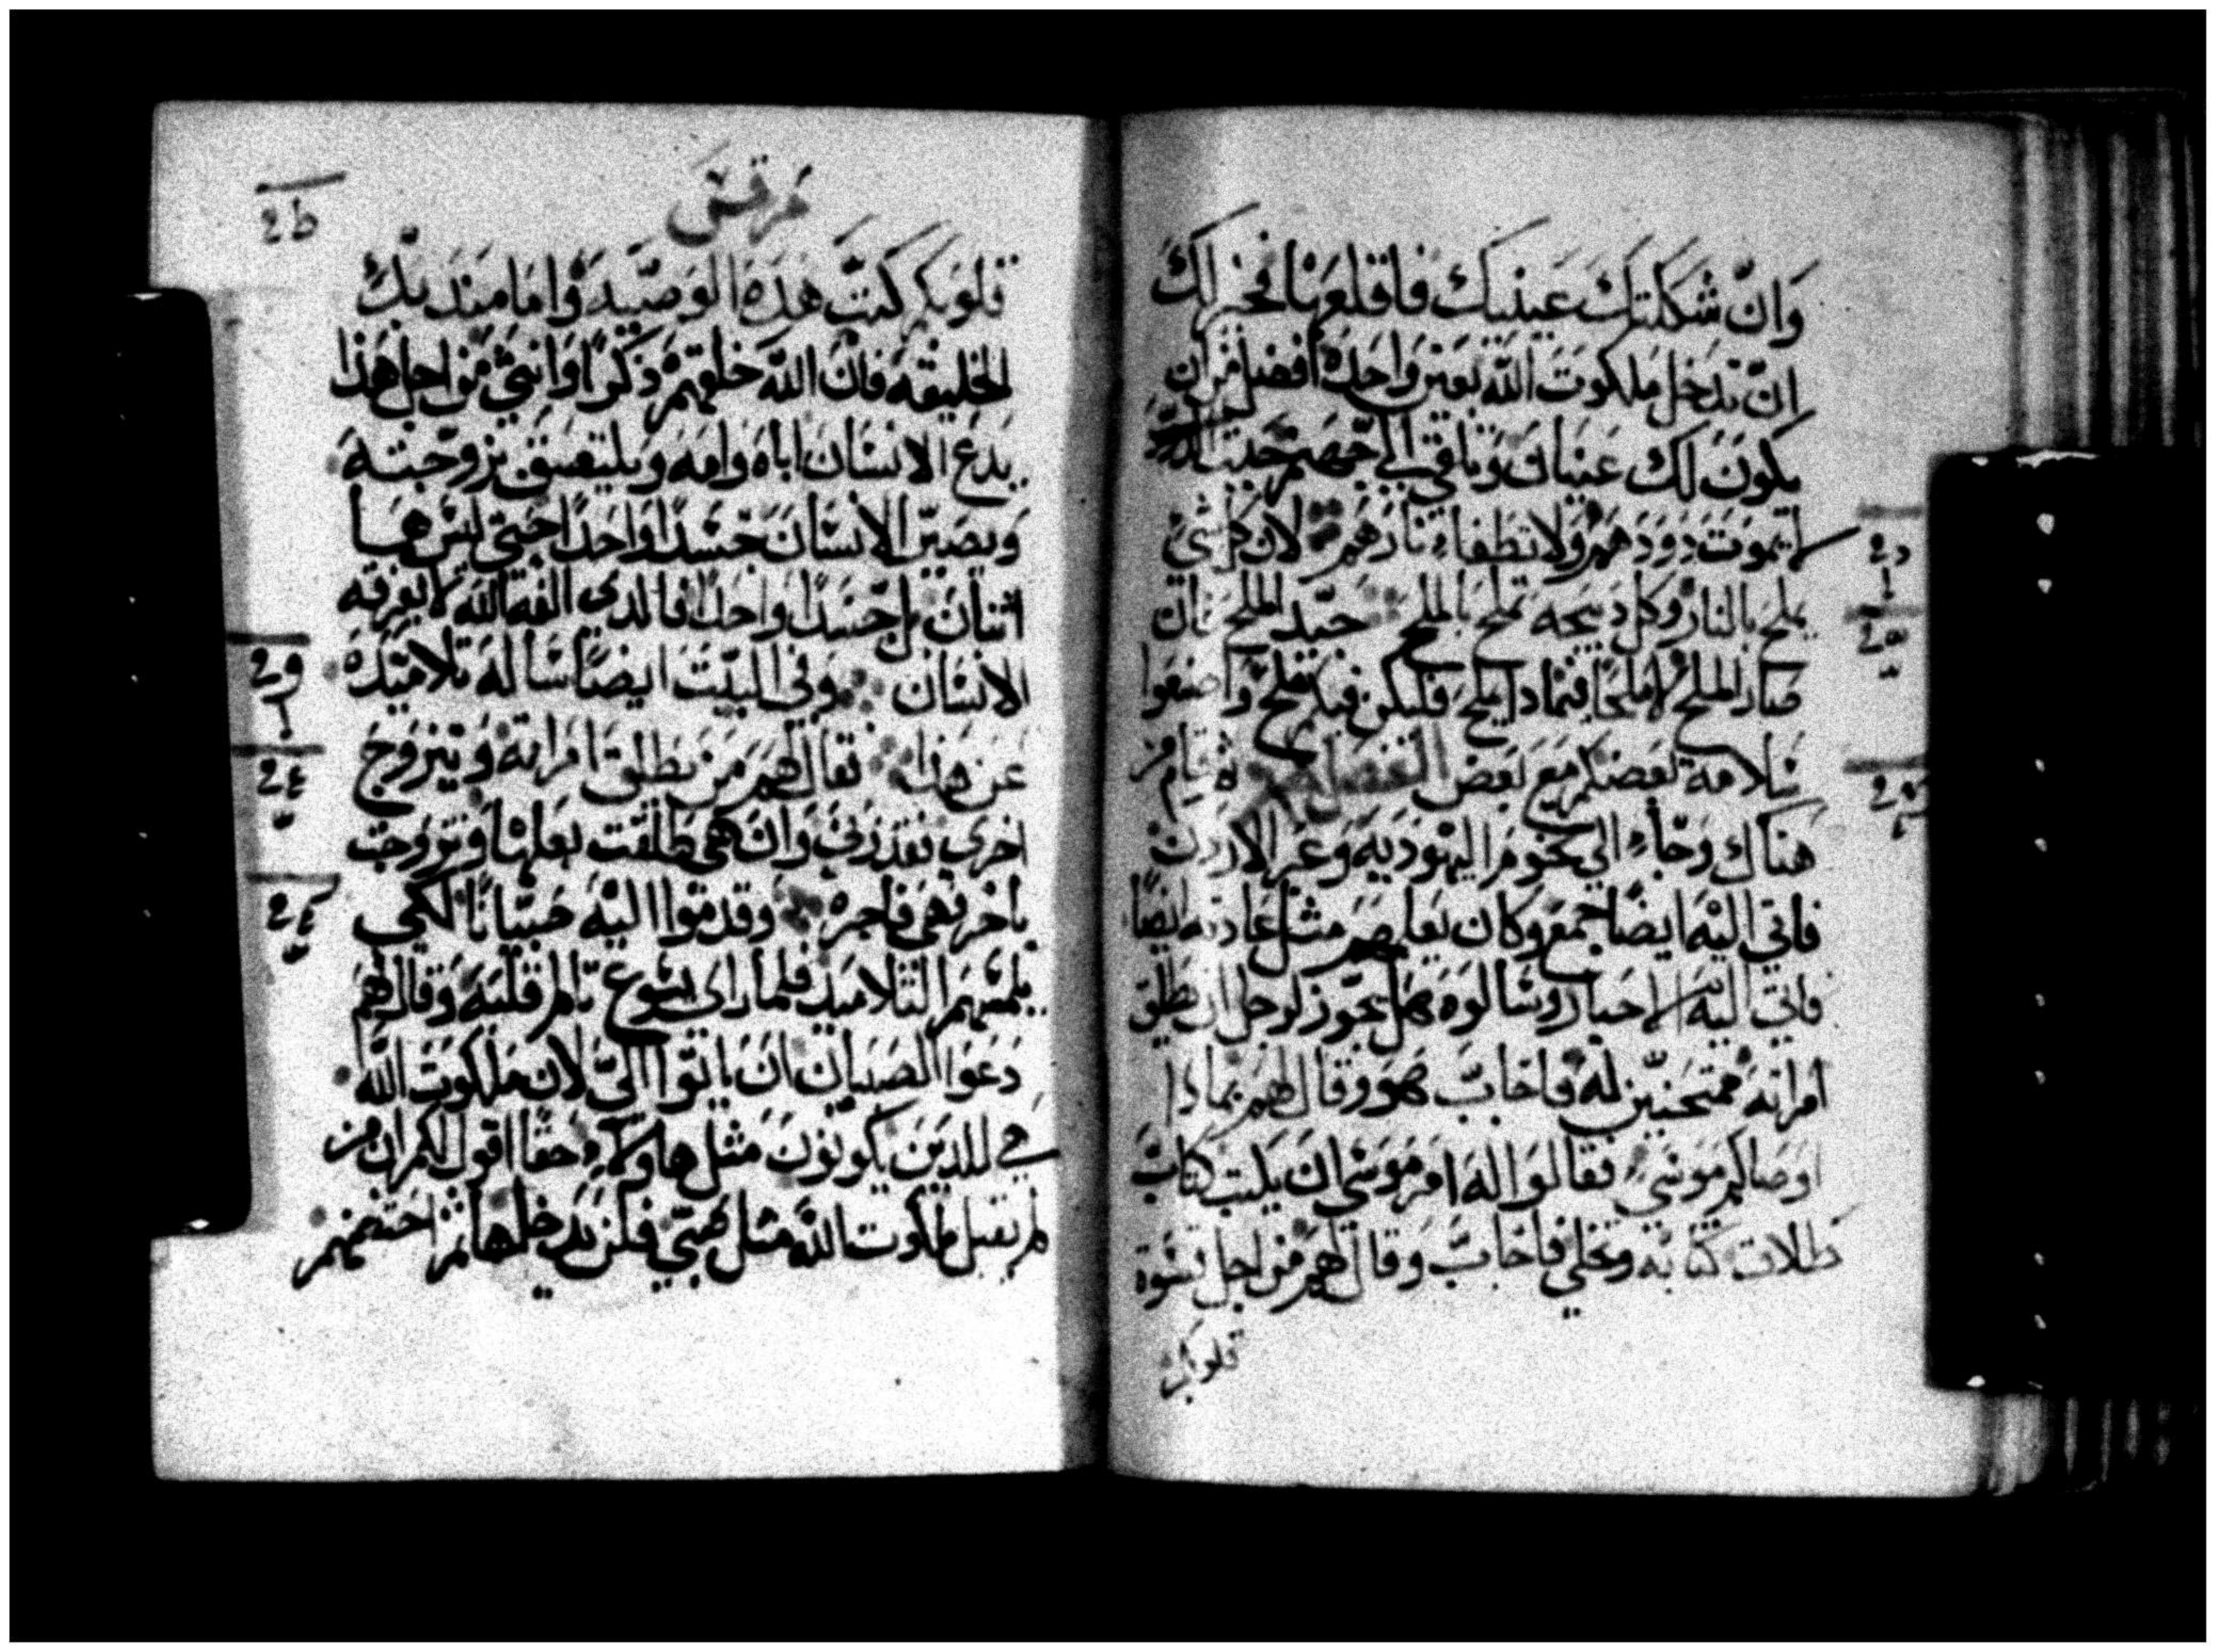 وَانّ شككتك عينيك فاقلعها فخير لك
انّ تدخل ملكوت الله بعين واحده افضل من ان
يكون لك عينان وتلقي الي جهنم حيت الدي
لايموت دودهم ولا تطفاء نارهم لان كل شئ
يملح بالنار وكل دبيحه تملح بالملح جيّد الملح فان
صار الملح لا ملحًا فبمادا يملح فليكن فيكم ملح واصنعوا
سلامة بعضكم مع بعض الفصل ثم قام من
هناك وجاء الي تخوم اليهوديه وعبر الاردن
فاتي اليه ايضًا جمع وكان يعلمهم مثل عادته ايضًا
فاتي اليه الاحبار وسالوه هل يجوز لرجل ان يطلق
امراته ممتحنيّن له فاجابّ هو وقال لهم بمادا
اوصاكم موسي فقالوا له امر موسي ان يكتب كتابّ
طلاق كتابه وتخلي فاجابّ وقال لهم من اجل قسوة
قلوبكم
مرقس
قلوبكم كتبّ هده الوصّيه وَاما مند بدئ
الخليقه فانّ الله خلقهم دكرًا وانثي من اجل هذا
يدع الانسان اباه وامه ويلتصق بزوجته
ويصيّر الانسان جسدًا واحدًا حتي ليس هما
اثنان بل جسدًا واحدًا فالدي الفه الله لا يفرقه
الانسان وفي البيّت ايضًا ساله تلاميده
عن هدا فقال لهم من يطلق امراته ويتزوج
اخري فقد زني وان هي طلقت بعلها وتزوجت
باخر فهي فاجره وقدموا اليه صبّيانًا لكي
يلمسهم التلاميد فلما راي يسوع تالم قلبه وقال لهم
دعوا الصبيان ان ياتوا اليّ لان ملكوت الله
هي للدين يكونون مثل هاولاء حقًا اقول لكم ان من
لم يقبل ملكوت الله مثل صبّي فلن يدخلها ثم احتضنهم